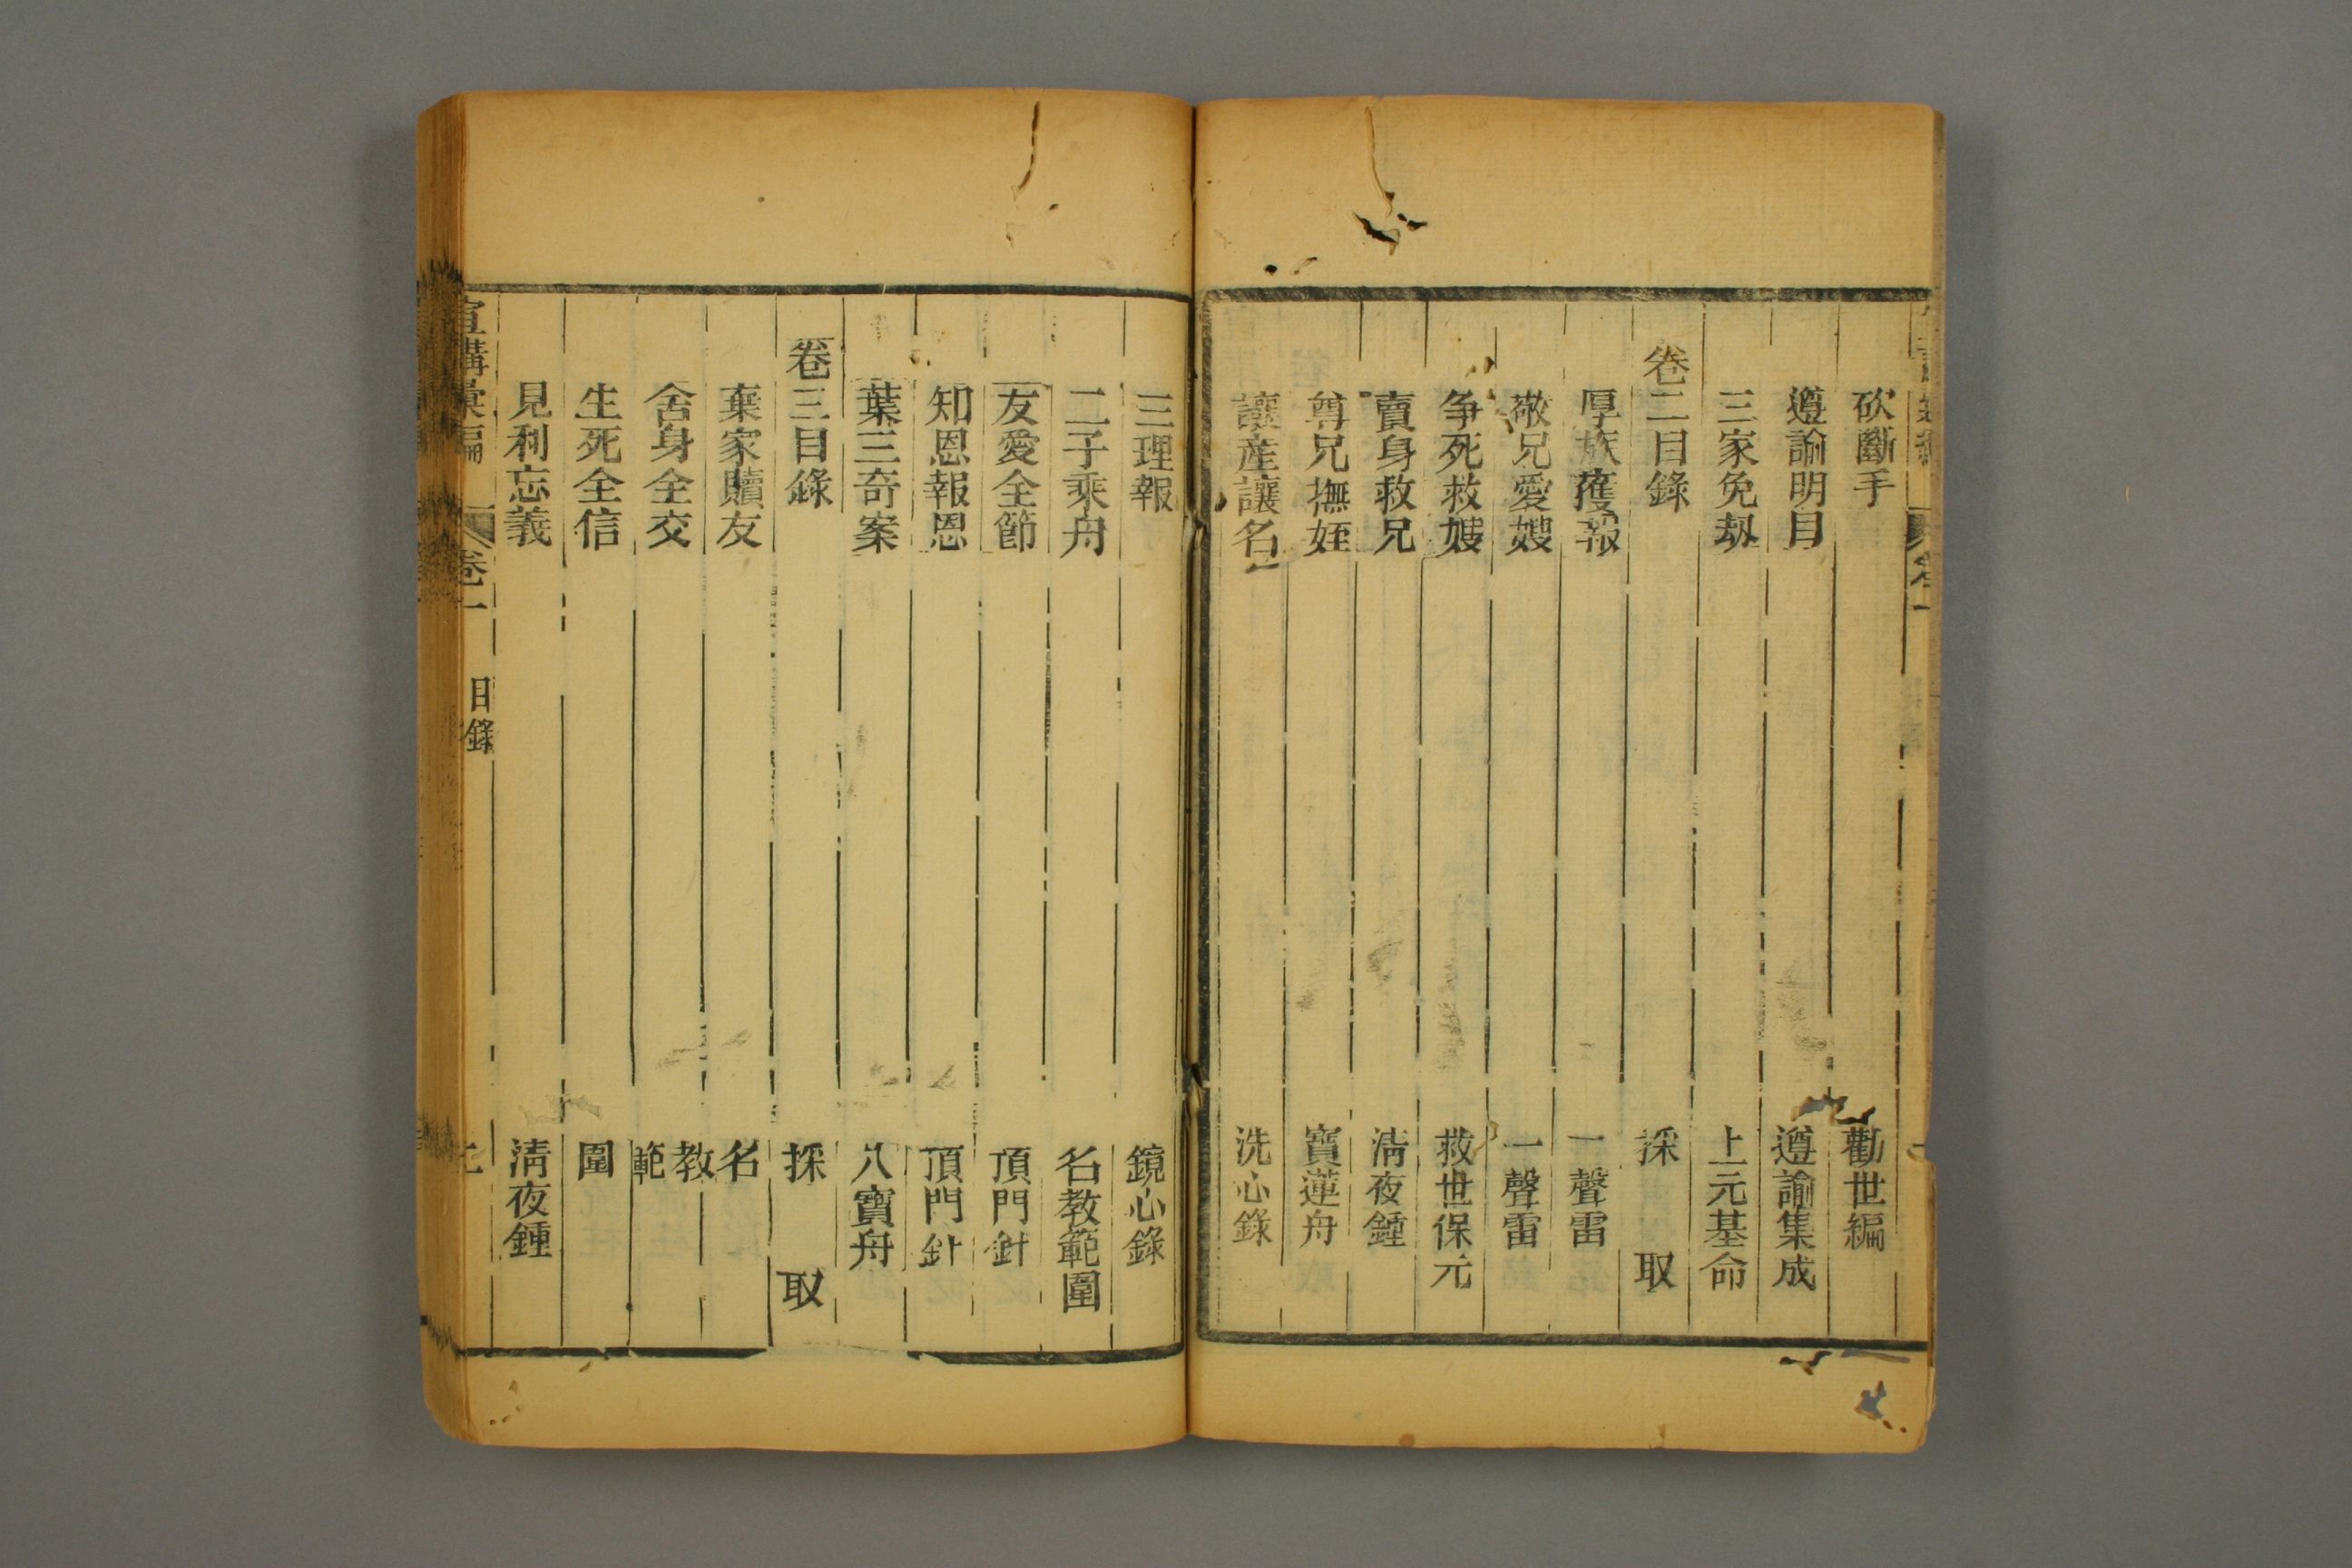 砍斷手 勸世編
遵諭明目 遵諭集成
三家免劫 上元基命
卷二目錄 採取
厚族獲報 一聲雷
敬兄愛嫂 一聲雷
争死救嫂 救世保元
賣身救兄 清夜鍾
尊兄撫姪 寶蓮舟
讓産讓名 洗心錄
三理報 鏡心錄
二子乘舟 名教範圍
友愛全節 頂門針
知恩報恩 頂門針
葉三奇案 八寶舟
卷三目錄 採取
棄家贖友 名
舍身全交 教範
生死全信 圍
見利忘義 清夜鍾
宣講彙編 卷一 目錄